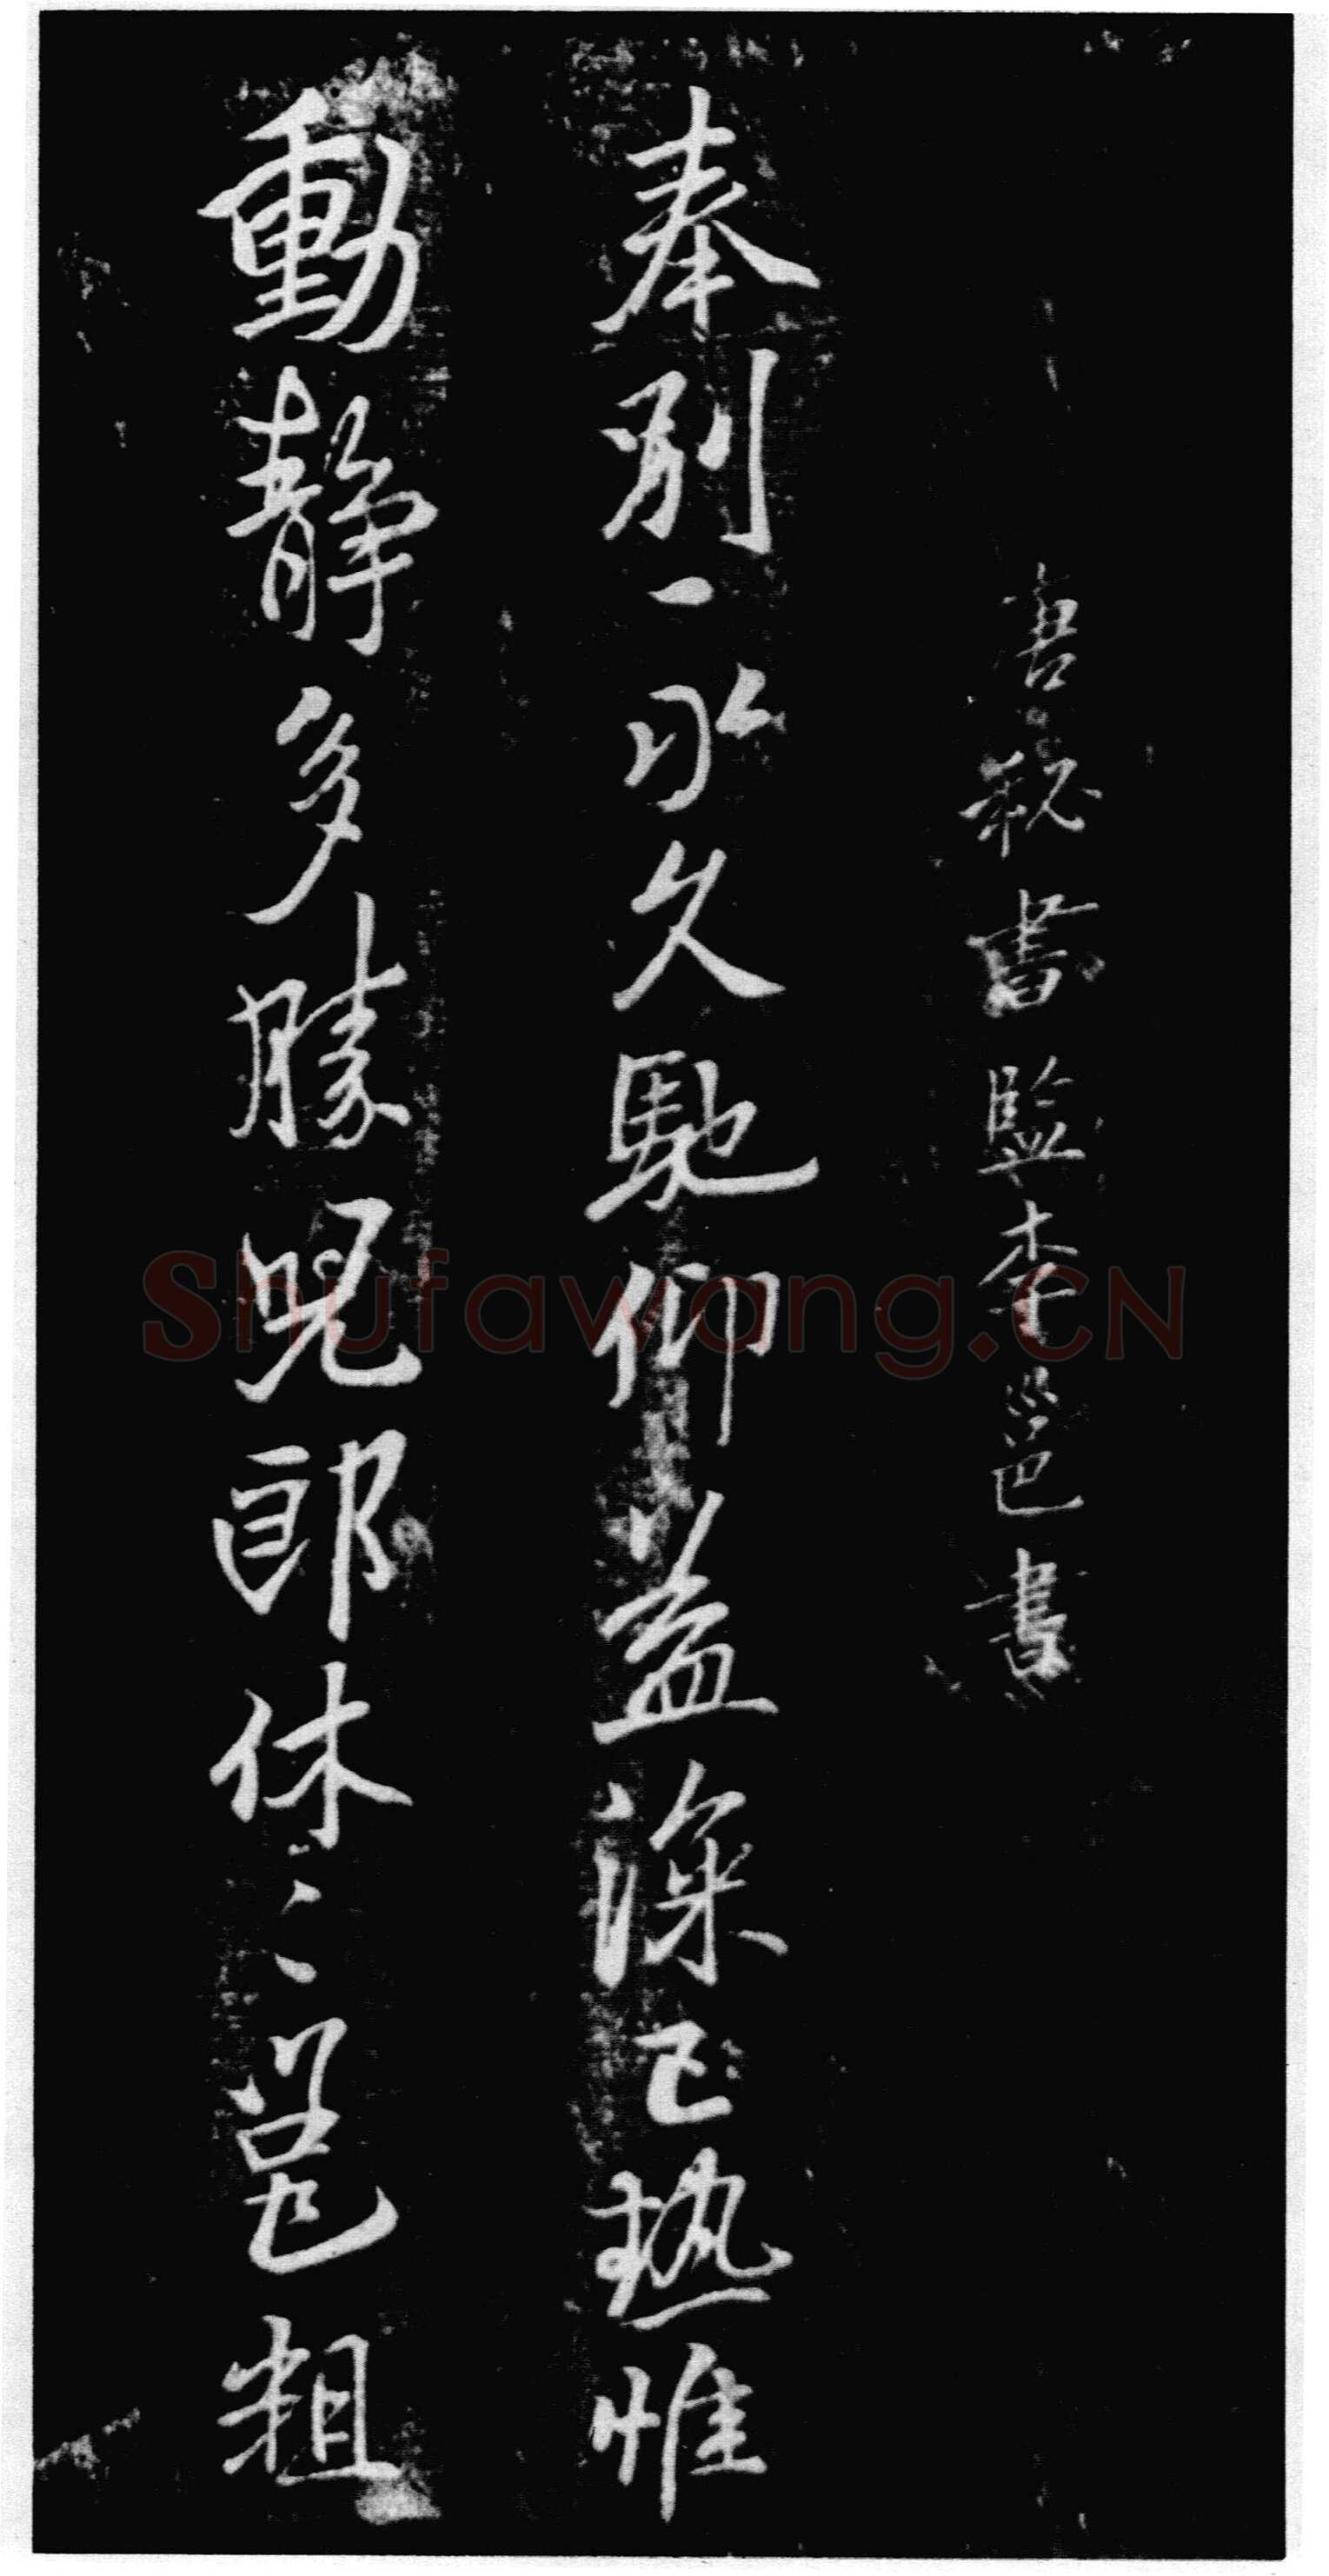 唐秘書監李邕書
奉別一Al久馳仰益深已熱惟
動靜多勝兒郎休〻邕粗
Shufawang.CN